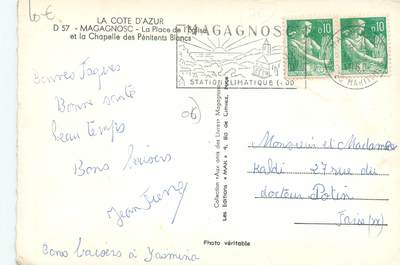 10 €
LA COTE D'AZUR
D 57 - MAGAGNOSC - La Place de l'Église
et la Chapelle des Pénitents Blancs
MAGAGNOSC
STATION CLIMATIQUE
0,10
0,10
Bonnes Pâques
Bonne santé
beau temps
Bons baisers
Bons baisers à Yasmina
(06)
Collection «Aux amis des Livres» Magagnosc
Les Éditions «MAR», 9, Bd de Cimiez, Nice
Monsieur et Madame
Kaldi 27 rue du
docteur Potin
Photo véritable